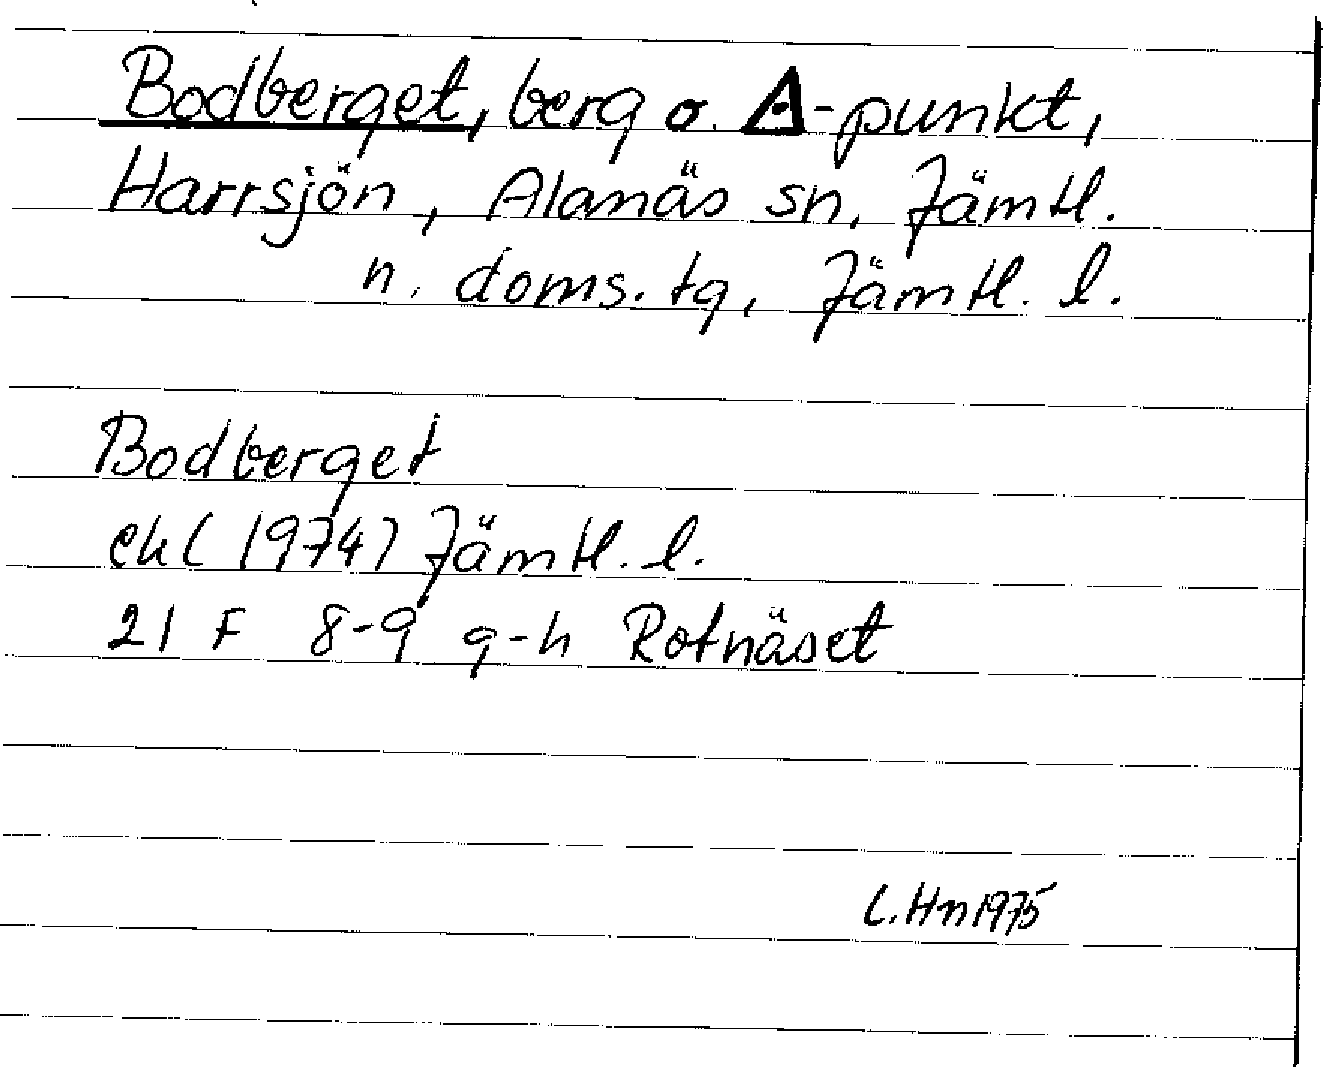 Bodberget, berg o. △-punkt,
Harrsjön, Alanäs sn, Jämtl.
n. doms. tg, Jämtl. l.
Bodberget
ek (1974) Jämtl. l.
21 F 8-9 g-h Rotnäset
C. Hn 1975